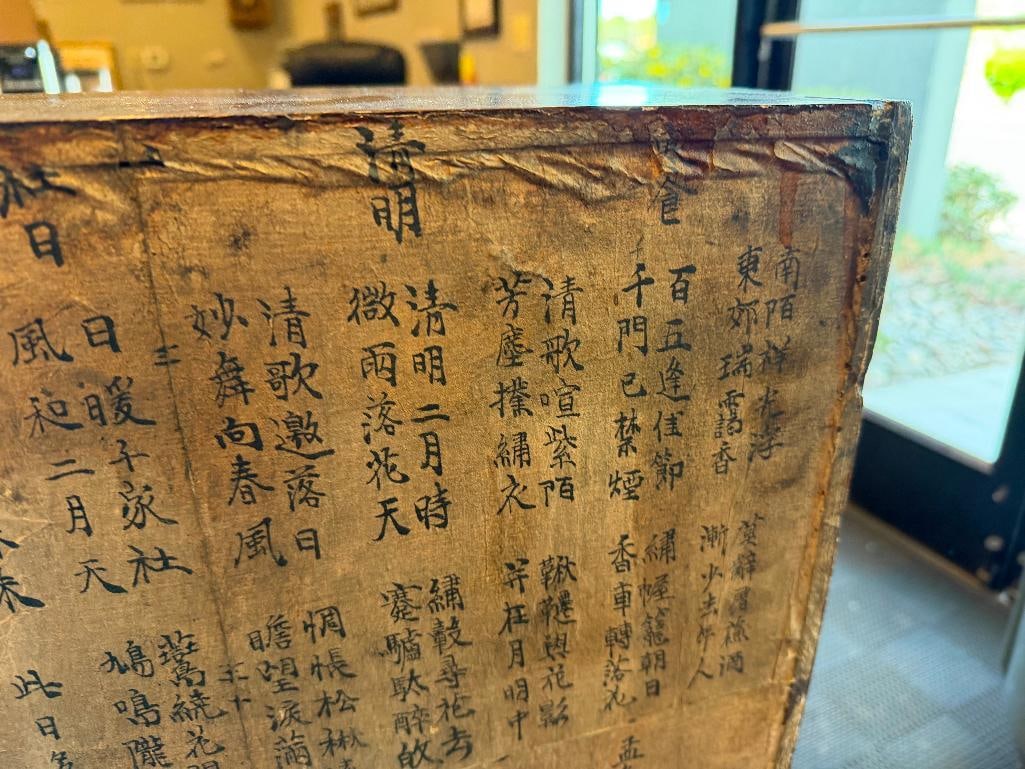 南陌祥光浮
東郊瑞靄香
漸少去年人
食
百五逢佳節
千門已禁煙
繡幄籠朝日
香車轉落花
清歌喧紫陌
芳塵撲繡衣
鞦韆與花影
并在月明中
清明
清明二月時
微雨落花天
繡轂尋花去
蹇驢馱醉
清歌邀落日
妙舞向春風
惆悵松楸
瞻望淚滿
社日
日暖千家社
風和二月天
鶯繞花
鳩鳴隴
此日